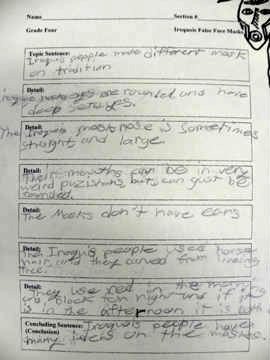 Name Section #
Grade Four Iroquois False Face Masks
Topic Sentence:
Iroquis people made different mask
on tradition
Detail:
Iroquis masks eyes are rounded and have
deep
Detail:
The Iroquis mask nose is sometimes
straight and large
Detail:
Their mouths can be in very
weird but can just be
rounded.
Detail:
The Masks don't have ears
Detail:
The Iroquis people use horse
hair, and they carved from
tree.
Detail:
They use red in the morning
and black for night and if it
is in the afternoon it is both
Concluding Sentence: Iroquois people have
(Conclusion)
many on the maskes.